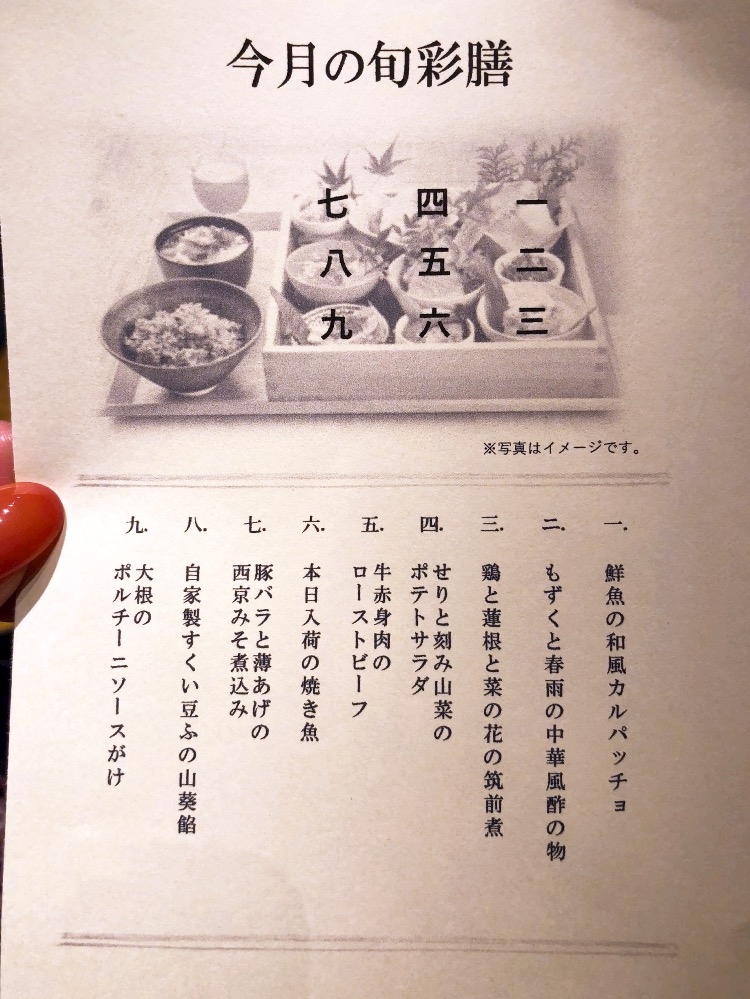 今月の旬彩膳
一
二
三
四
五
六
七
八
九
※写真はイメージです。
一. 鮮魚の和風カルパッチョ
二. もずくと春雨の中華風酢の物
三. 鶏と蓮根と菜の花の筑前煮
四. せりと刻み山菜の
ポテトサラダ
五. 牛赤身肉の
ローストビーフ
六. 本日入荷の焼き魚
七. 豚バラと薄あげの
西京みそ煮込み
八. 自家製すくい豆ふの山葵餡
九. 大根の
ポルチーニソースがけ